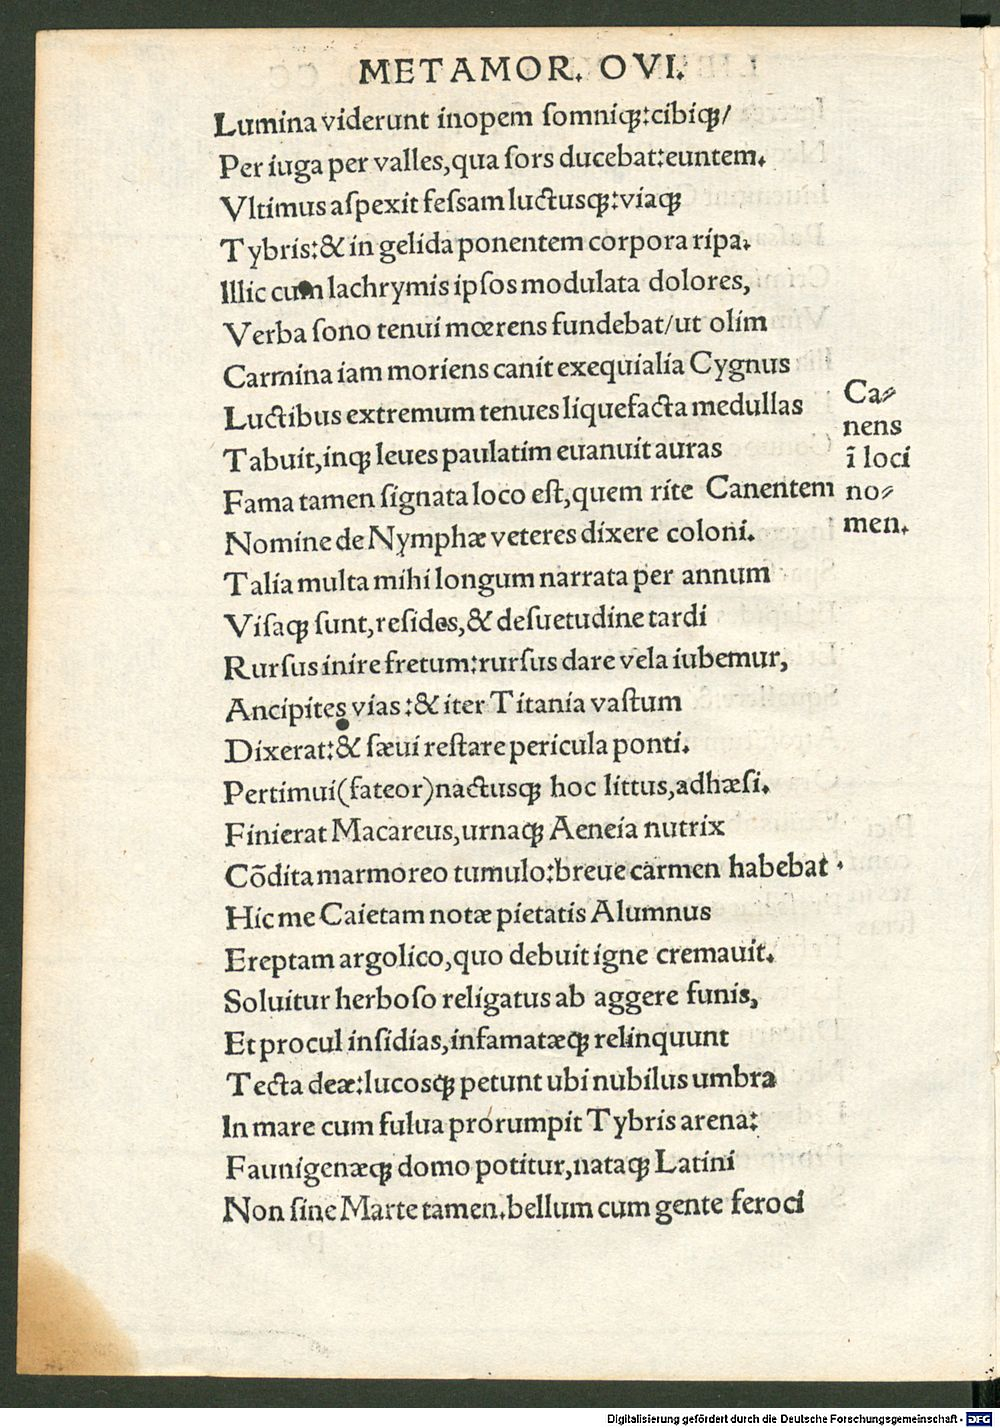 METAMOR. OVI.
Lumina viderunt inopem ſomniqꝫ:cibiqꝫ/
Per iuga per valles,qua ſors ducebat:euntem.
Vltimus aſpexit feſſam luctusqꝫ:viaqꝫ
Tybris:& in gelida ponentem corpora ripa.
Illic cum lachrymis ipſos modulata dolores,
Verba ſono tenui mœrens fundebat/ut olim
Carmina iam moriens canit exequialia Cygnus
Luctibus extremum tenues liquefacta medullas
Tabuit,inqꝫ leues paulatim euanuit auras
Fama tamen ſignata loco eſt,quem rite Canentem
Nomine de Nymphæ veteres dixere coloni.
Talia multa mihi longum narrata per annum
Viſaqꝫ ſunt,reſides,& deſuetudine tardi
Rurſus inire fretum:rurſus dare vela iubemur,
Ancipites vias:& iter Titania vaſtum
Dixerat:& ſæui reſtare pericula ponti.
Pertimui(fateor)nactusqꝫ hoc littus,adhæſi.
Finierat Macareus,urnaqꝫ Aeneia nutrix
Cõdita marmoreo tumulo:breue carmen habebat.
Hic me Caietam notæ pietatis Alumnus
Ereptam argolico,quo debuit igne cremauit.
Soluitur herboſo religatus ab aggere funis,
Et procul inſidias,infamatæqꝫ relinquunt
Tecta deæ:lucosqꝫ petunt ubi nubilus umbra
In mare cum fulua prorumpit Tybris arena:
Faunigenæqꝫ domo potitur,nataqꝫ Latini
Non ſine Marte tamen.bellum cum gente feroci
Ca⸗
nens
ĩ loci
no⸗
men.
Digitalisierung gefördert durch die Deutsche Forschungsgemeinschaft - DFG